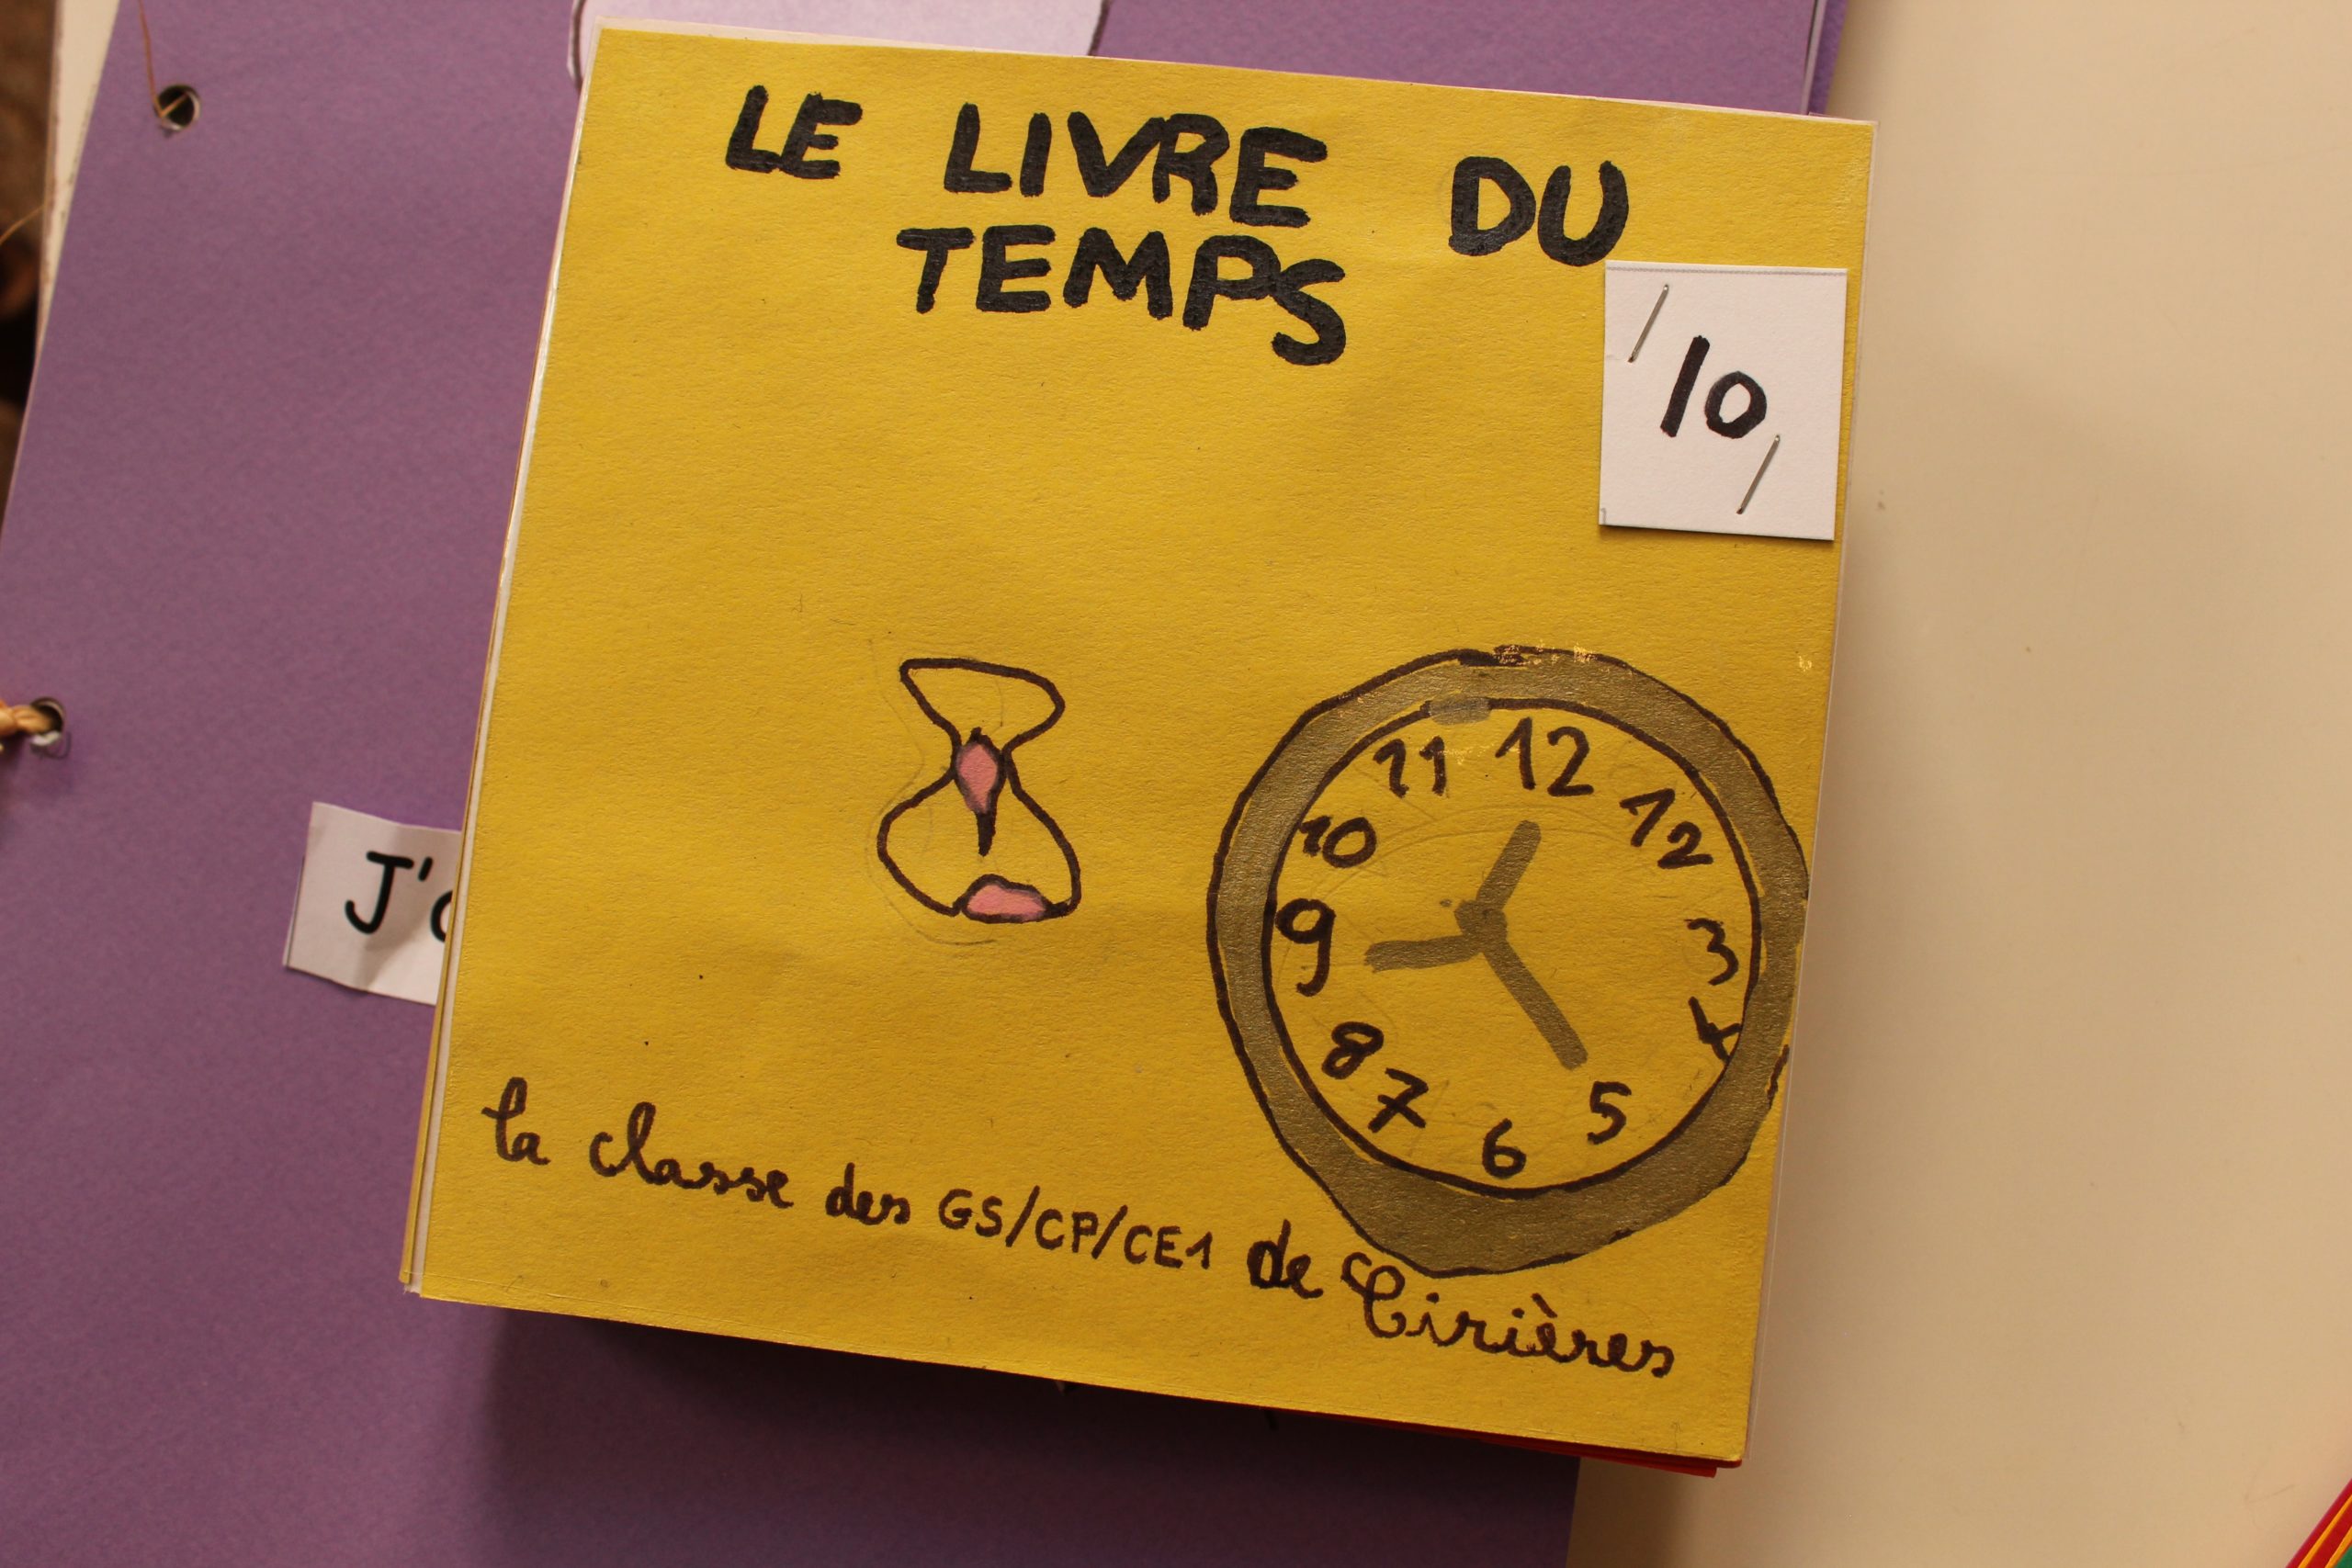 LE LIVRE DU
TEMPS
10
11 12 12
10
9 3
8 4
7 6 5
J'
la classe des GS/CP/CE1 de Cirières